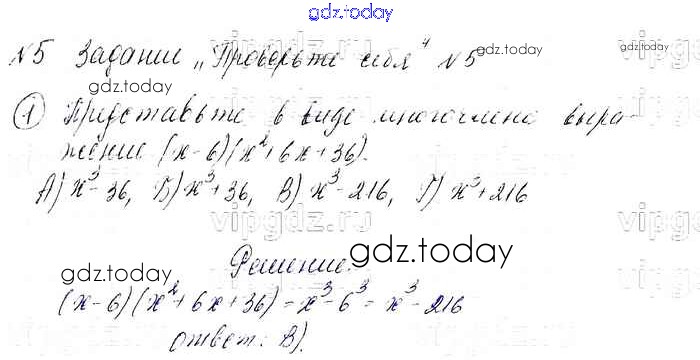 gdz.today
№5 Задании „Проверьте себя“ №5
gdz.today
gdz.today
① Представьте в виде многочлена выра-
жение (x-6)(x²+6x+36).
А) x³-36, Б) x³+36, В) x³-216, Г) x³+216
vipgdz.ru
vipgdz.ru
Решение.
gdz.today
gdz.today
(x-6)(x²+6x+36)=x³-6³=x³-216
Ответ: В).